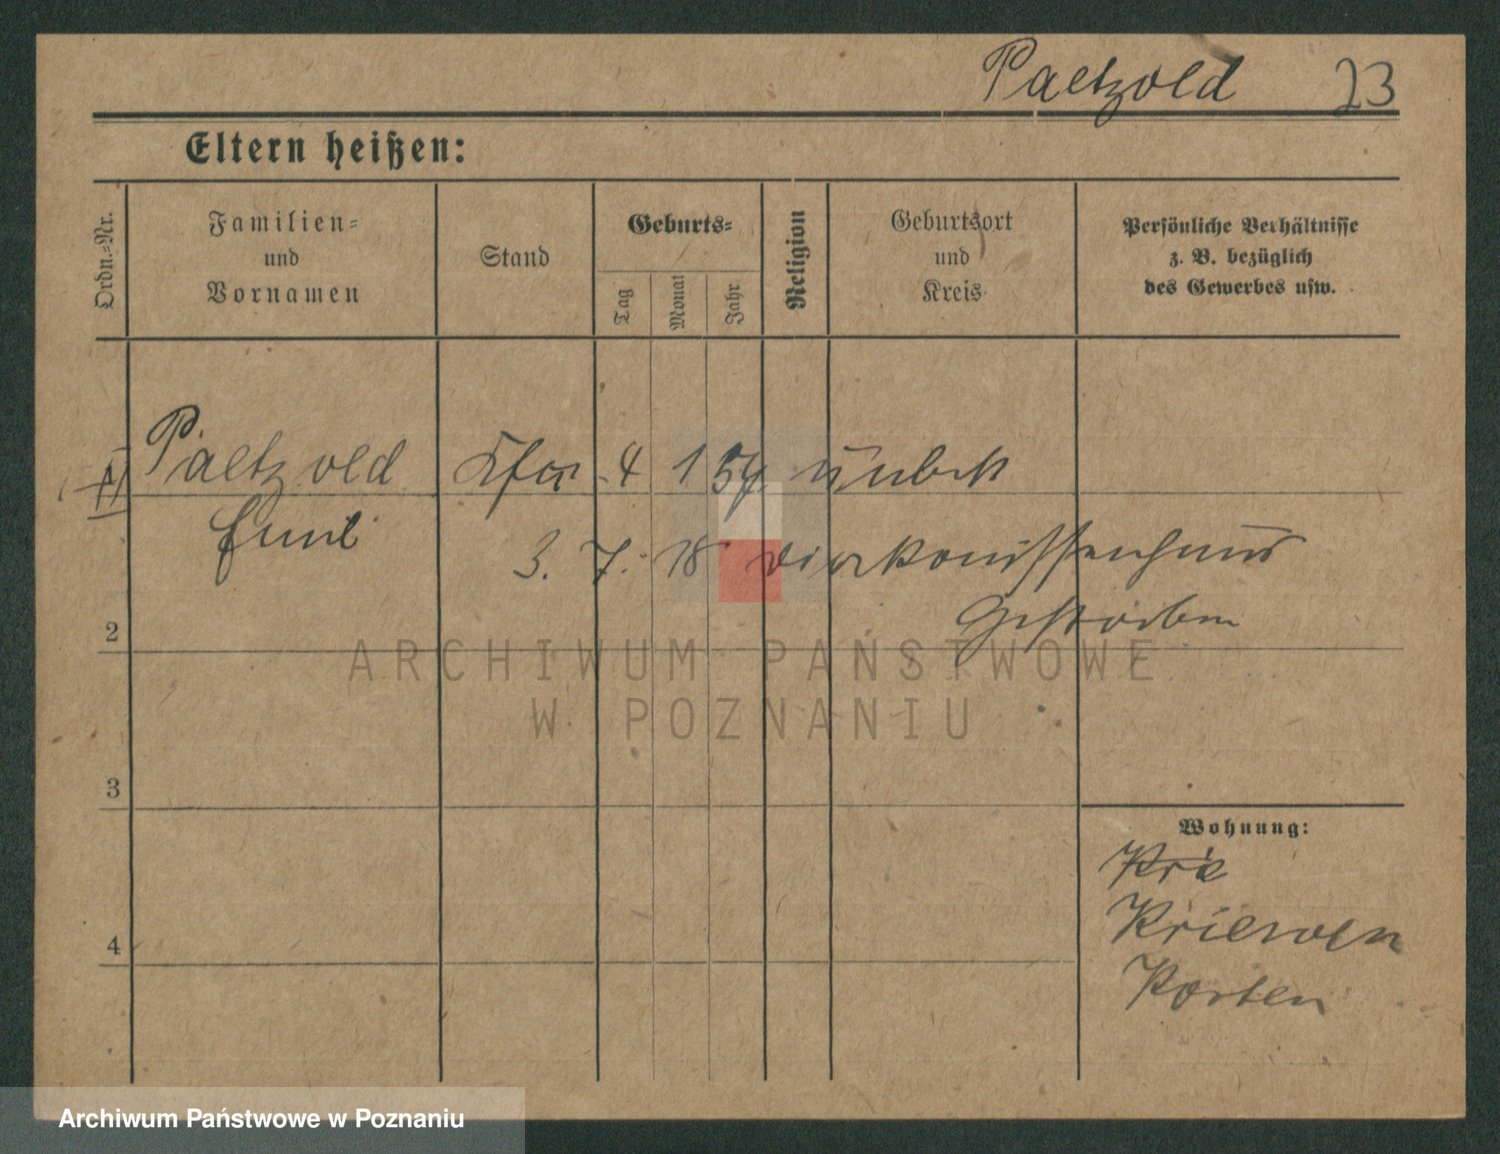 Paetzold 23
Eltern heißen:
Ordn.-Nr.
Familien-
und
Vornamen
Stand
Geburts-
Tag
Monat
Jahr
Religion
Geburtsort
und
Kreis
Persönliche Verhältnisse
z. B. bezüglich
des Gewerbes usw.
Paetzold 4 1 57 unbek
Emil
3. 7. 18 Diakonissenhaus
Gestorben
2
3
4
Wohnung:
Kri
Kriewen
Kosten
ARCHIWUM PAŃSTWOWE
W POZNANIU
Archiwum Państwowe w Poznaniu